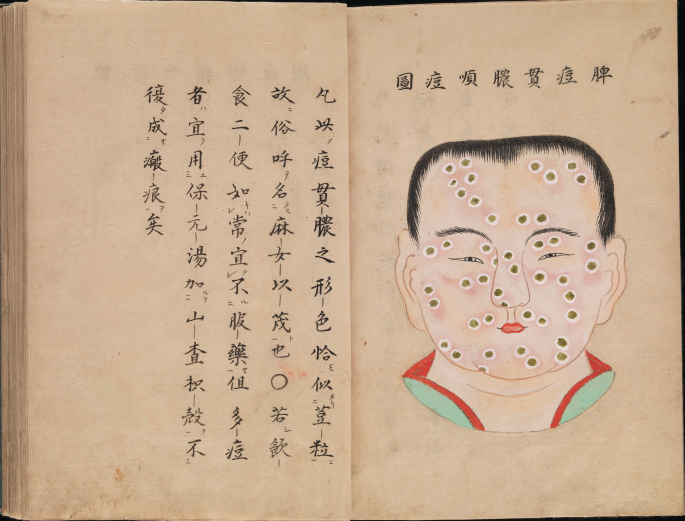 脾痘貫膿順痘圖
凡此痘貫膿之形色恰似荳粒
故俗呼名麻女以茂也〇若飲
食二便如常宜不服藥但多痘
者宜用保元湯加山査枳殻不
復成瘢痕矣